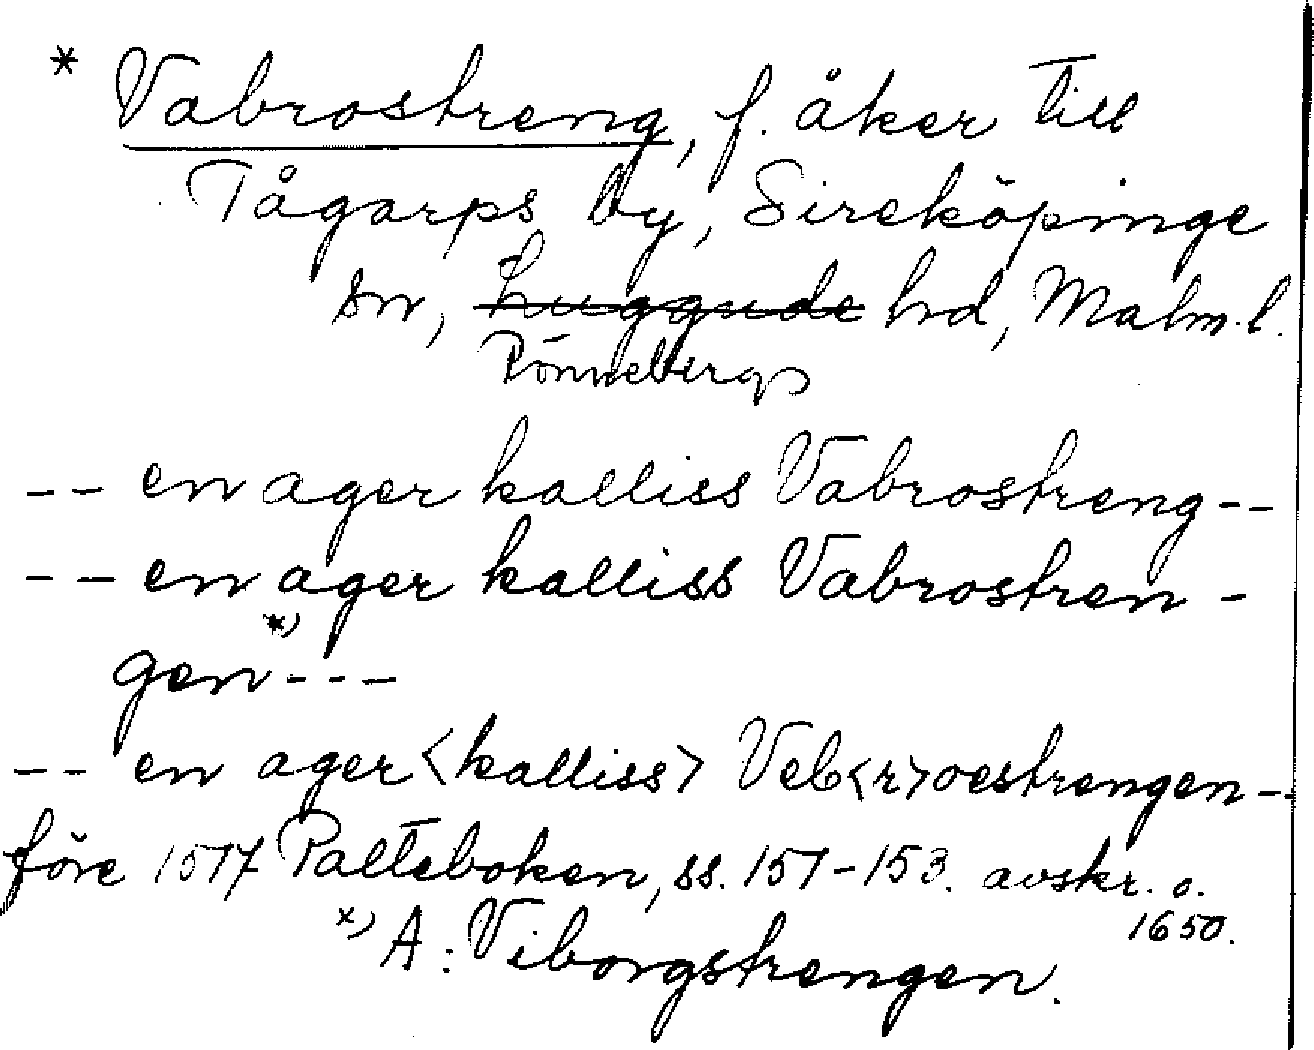 * Vabrostreng, f. åker till
Tågarps by, Sireköpinge
sn, Luggude hrd, Malm. l.
Rönnebergs
-- en ager kalliss Vabrostreng--
-- en ager kalliss Vabrostren-
gen*) ---
-- en ager <kalliss> Veb<r>oestrengen--
före 1517 Palteboken, ss. 151-153. avskr. o.
1650.
*) A: Viborgstrengen.